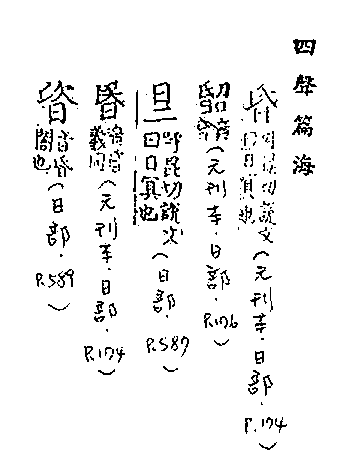 四聲篇海
昏呼昆切說文曰日冥也（元刊本．日部．P.174）
音（元刊本．日部．P.176）
呼昆切說文曰日冥也（日部．P.587）
音昏義同（元刊本．日部．P.174）
音昏闇也（日部．P.589）